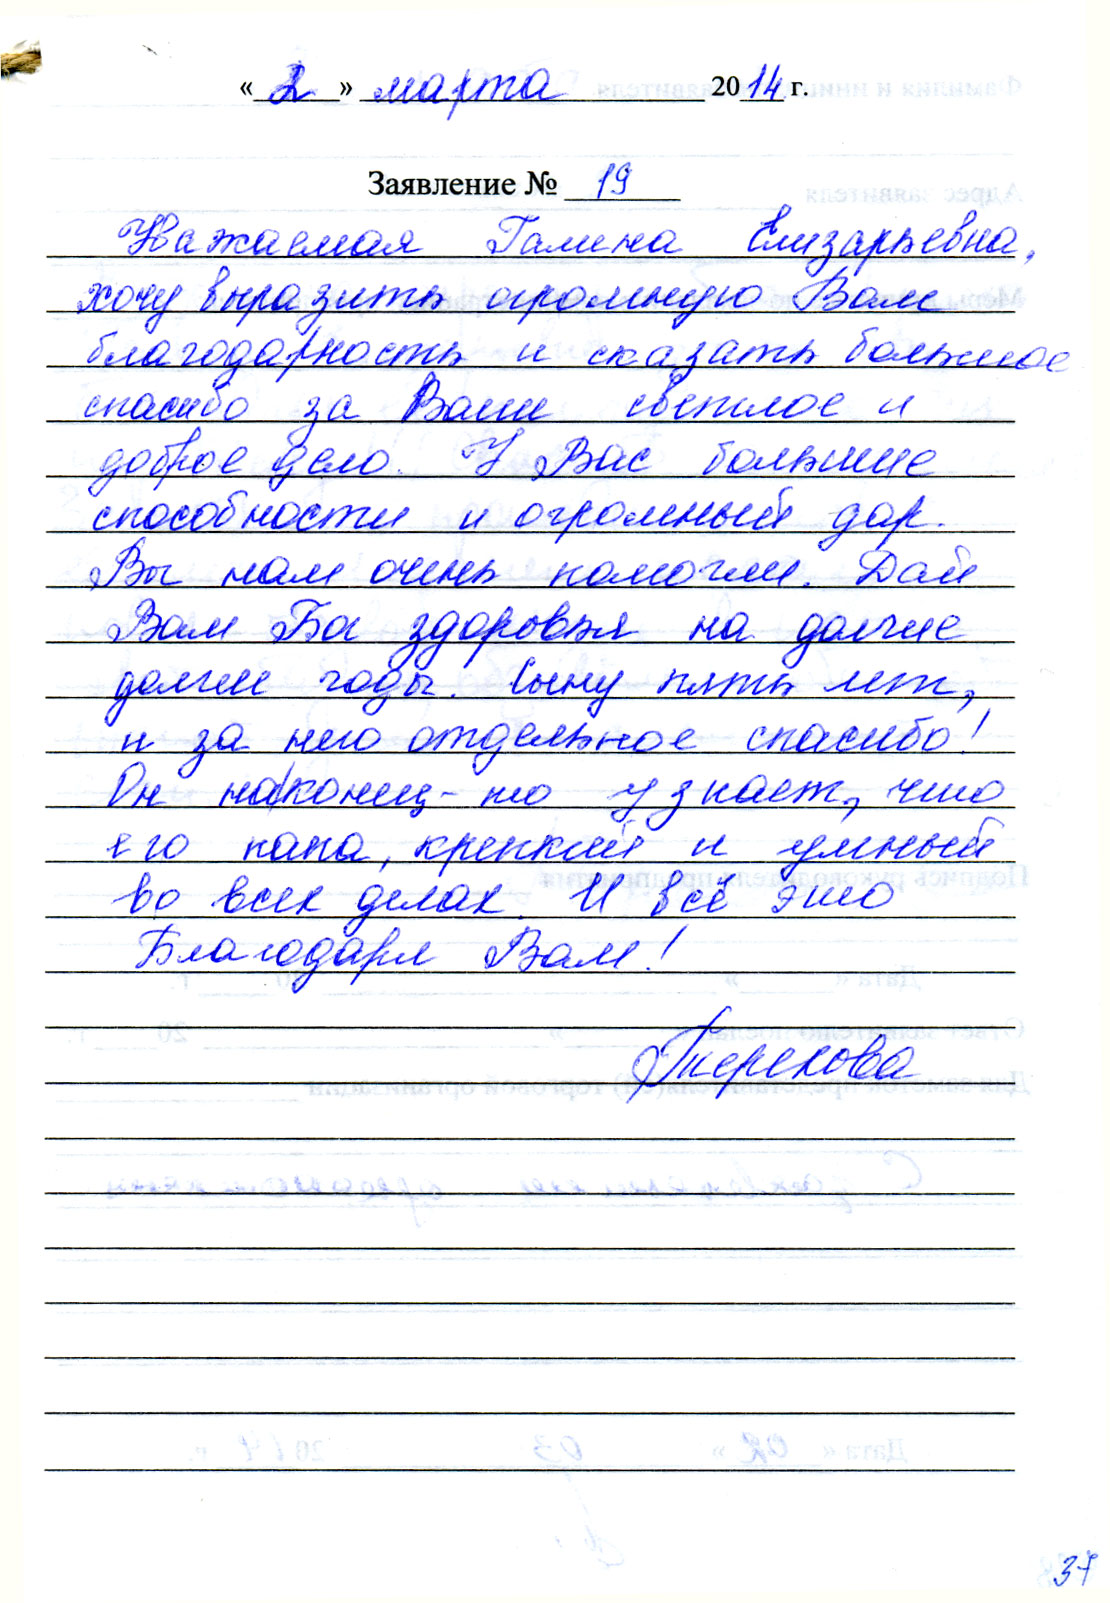 « 2 » марта 2014 г.
Заявление № 19
Уважаемая Галина Елизарьевна,
хочу выразить огромную Вам
благодарность и сказать большое
спасибо за Ваше светлое и
доброе дело. У Вас большие
способности и огромный дар.
Вы нам очень помогли. Дай
Вам Бог здоровья на долгие
долгие годы. Сыну пять лет,
и за него отдельное спасибо!
Он наконец-то узнает, что
его папа, крепкий и умный
во всех делах. И всё это
Благодаря Вам!
Терехова
37